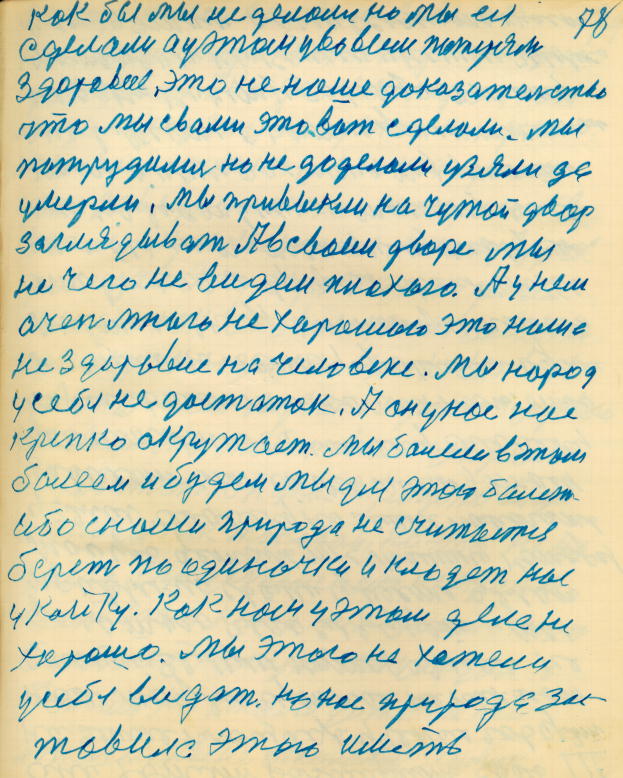 78
как бы мы не делали но мы ея
сделали а у этом у во всем потеряли
здоровие, это не наше доказательство
что мы с вами это вот сделали. Мы
потрудилися но не доделали узяли да
умерли. Мы привыкли на чужой двор
заглядыват А в своем дворе мы
не чего не видем плохого. А у нем
очен много не хорошого это наше
не здоровие на человеке. Мы народ
у себя не достаток. А он у нас нас
крепко окружает. Мы болели в этом
болеем и будем мы для этого болет.
ибо с нами природа не считается
берет по одиночки и кладет нас
у койку. Как нам у этом деле не
хорошо. Мы этого не хотели
у себя видат. но нас природа зас
тавила этого иметь